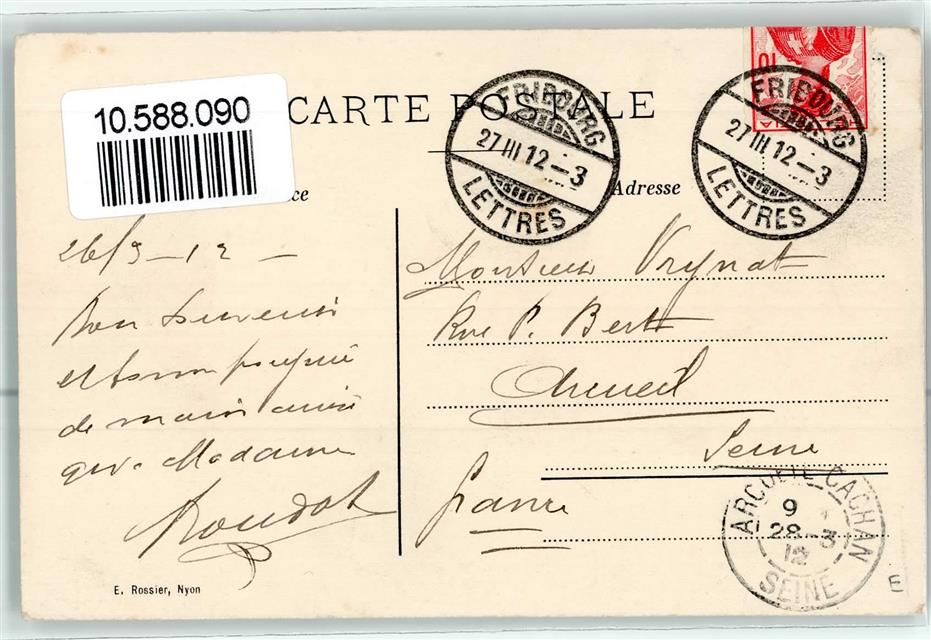 10.588.090
CARTE POSTALE
FRIBOURG
27 III 12 – 3
LETTRES
FRIBOURG
27 III 12 – 3
LETTRES
10
ce
Adresse
26/3 – 12 –
Bon Souvenir
de
Madame
Monsieur Vrynat
Rue P. Bert
Arcueil
Seine
France
E. Rossier, Nyon
ARCUEIL-CACHAN
9
28-3
12
SEINE
E